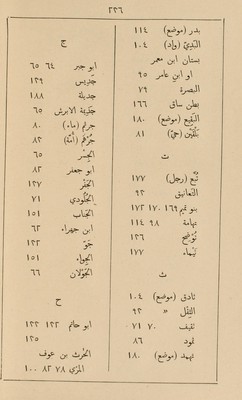 ٢٢٦
بدر (موضع) ١١٤
البديّ (واد) ١٠٤
بستان ابن معمر
او ابن عامر ٩٥
البصرة ٧٩
بطن ساق ١٦٦
البقيع (موضع) ١٨٠
بلقين (حيّ) ٨١
ت
تبّع (رجل) ١٧٧
التعانيق ٩٢
بنو تميم ١٦٩ ١٧٠ ١٧٢
تهامة ٩٨ ١١٤
توضح ١٢٦
تيماء ١٧٧
ث
ثادق (موضع) ١٠٤
الثقل » ٩٢
ثقيف ٧٠ ٧١
ثمود ٨٦
ثهمد (موضع) ١٨٠
ج
ابو جبر ٦٤ ٦٥
جديس ١٣٩
جديلة
جذيمة الابرش ٦٥
جرثم (ماء) ٨٠
جرهم (امّة) ٨٢
الجسر ٦٥
ابو جعفر ٨٢
الجفر ١٣٧
الجلودي ٧١
الجناب ١٥١
ابن جهراء ٦٢
جوّ ١٣٢
الجواء ١٥١
الجولان ٦٦
ح
ابو حاتم ١٢٣ ١٣٣
١٣٥
الحرث بن عوف
المرّي ٧٨ ٨٢ ١٠٠